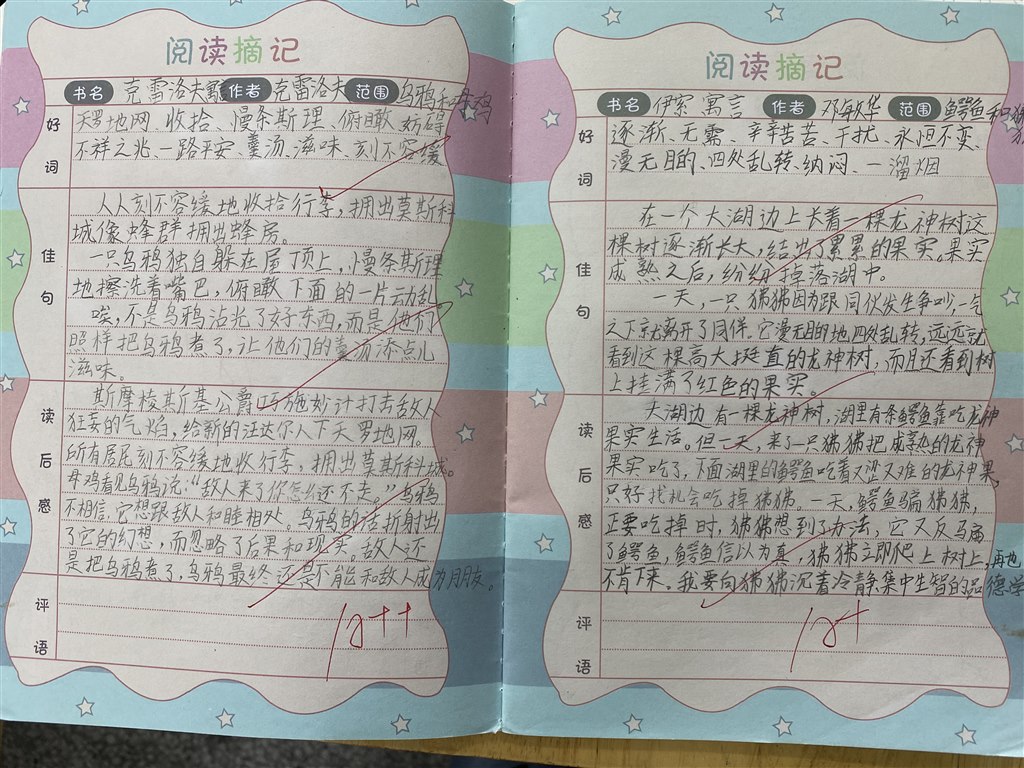 阅读摘记
书名 克雷洛夫寓 作者 克雷洛夫 范围 乌鸦和母鸡
好词
天罗地网、收拾、慢条斯理、俯瞰、妨碍
不祥之兆、一路平安、羹汤、滋味、刻不容缓
佳句
人人刻不容缓地收拾行李，拥出莫斯科
城像蜂群拥出蜂房。
一只乌鸦独自躲在屋顶上，慢条斯理
地擦洗着嘴巴，俯瞰下面的一片动乱
唉，不是乌鸦沾光了好东西，而是他们
照样把乌鸦煮了，让他们的羹汤添点儿
滋味。
读后感
斯摩棱斯基公爵巧施妙计打击敌人
狂妄的气焰，给新的汪达尔人下天罗地网。
所有居民刻不容缓地收行李，拥出莫斯科城。
母鸡看见乌鸦说：“敌人来了你怎么还不走。”乌鸦
不相信，它想跟敌人和睦相处。乌鸦的话折射出
了它的幻想，而忽略了后果和现实。敌人还
是把乌鸦煮了，乌鸦最终还是不能和敌人成为朋友。
评语
阅读摘记
书名 伊索寓言 作者 邓敏华 范围 鳄鱼和狒
好词
逐渐、无需、辛辛苦苦、干扰、永恒不变、
漫无目的、四处乱转、纳闷、一溜烟
佳句
在一个大湖边上长着一棵龙神树这
棵树逐渐长大，结出了累累的果实，果实
成熟之后，纷纷掉落湖中。
一天，一只狒狒因为跟同伙发生争吵，一气
之下就离开了同伴。它漫无目的地四处乱转，远远就
看到这棵高大挺直的龙神树，而且还看到树
上挂满了红色的果实。
读后感
大湖边有一棵龙神树，湖里有条鳄鱼靠吃龙神
果实生活。但一天，来了一只狒狒把成熟的龙神
果实吃了，下面湖里的鳄鱼吃着又涩又难的龙神果，
只好找机会吃掉狒狒。一天，鳄鱼骗狒狒，
正要吃掉时，狒狒想到了办法，它又反骗
了鳄鱼，鳄鱼信以为真，狒狒立即爬上树上，再也
不肯下来。我要向狒狒沉着冷静、集中生智的品德学
评语